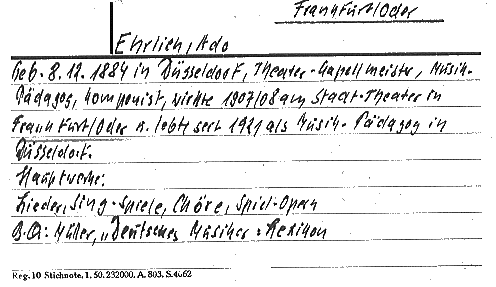 Frankfurt/Oder
Ehrlich, Ado
Geb. 8. 12. 1884 in Düsseldorf, Theater-Kapellmeister, Musik-
Pädagog, Komponist, wirkte 1907/08 am Stadt-Theater in
Frankfurt/Oder u. lebte seit 1921 als Musik-Pädagog in
Düsseldorf.
Hauptwerke:
Lieder, Sing-Spiele, Chöre, Spiel-Opern
B.Q: Müller, „Deutsches Musiker-Lexikon
Reg. 10 Stichnote. 1. 50. 232000. A. 803. S. 4662